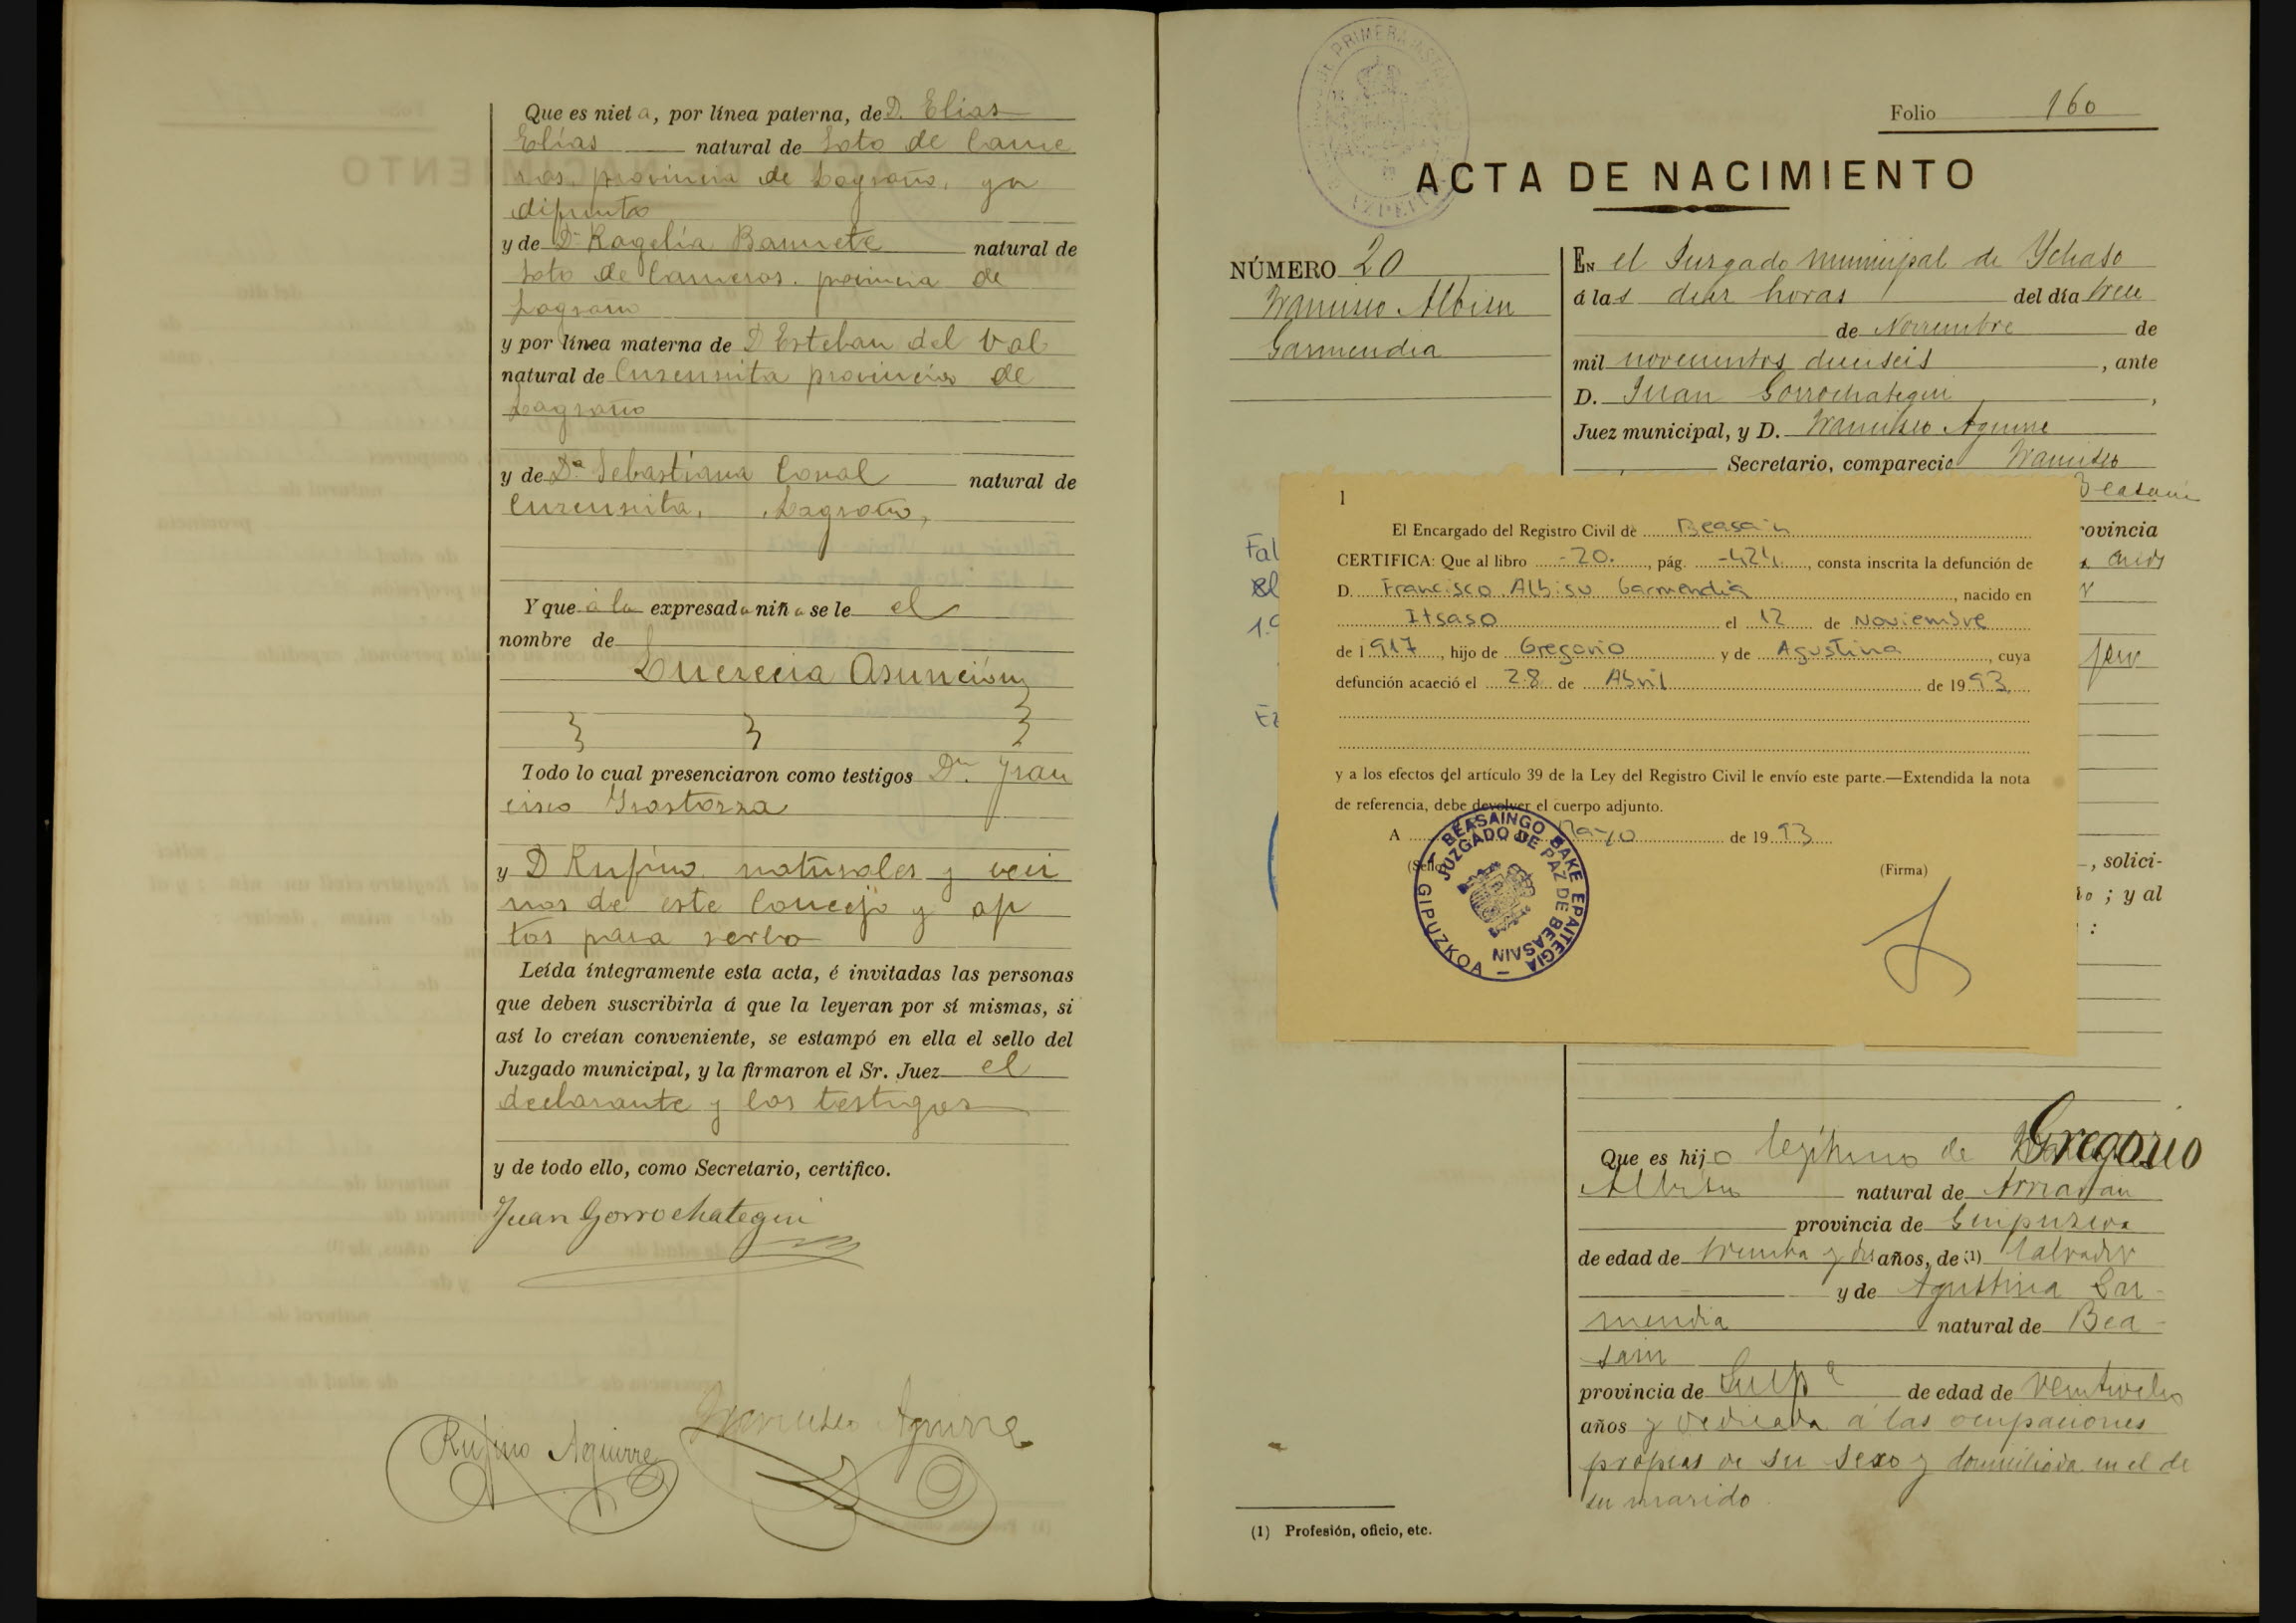 Que es nieta, por línea paterna, de D. Elías
Elías natural de Soto de Came
ros, provincia de Logroño, ya
difunto
y de Dª Rogelia natural de
Soto de Cameros. provincia de
Logroño
y por línea materna de D Esteban del Val
natural de provincia de
Logroño
y de Dª Sebastiana natural de
Logroño,
Y que á la expresada niña se le el
nombre de
Lucrecia Asunción
Todo lo cual presenciaron como testigos Dn. Fran
cisco
y D Rufino naturales y veci
nos de este Concejo y ap
tos para serlo
Leída íntegramente esta acta, é invitadas las personas
que deben suscribirla á que la leyeran por sí mismas, si
así lo creían conveniente, se estampó en ella el sello del
Juzgado municipal, y la firmaron el Sr. Juez el
declarante y los testigos
y de todo ello, como Secretario, certifico.
Juan Gorrochategui
Rufino Aguirre
Francisco Aguirre
Folio 160
ACTA DE NACIMIENTO
NÚMERO 20
Francisco Albisu
Garmendia
EN el Juzgado municipal de Ychaso
á las diez horas del día trece
de Noviembre de
mil novecientos dieciseis, ante
D. Juan Gorrochategui,
Juez municipal, y D. Francisco Aguirre
Secretario, compareció Francisco
Beasain
rovincia
Fal
1.9
1
El Encargado del Registro Civil de Beasain
CERTIFICA: Que al libro -20.-, pág. -424-, consta inscrita la defunción de
D. Francisco Albisu Garmendia, nacido en
Itsaso el 12 de Noviembre
de 1917, hijo de Gregorio y de Agustina, cuya
defunción acaeció el 28 de Abril de 1993
y a los efectos del artículo 39 de la Ley del Registro Civil le envío este parte.—Extendida la nota
de referencia, debe devolver el cuerpo adjunto.
A Mayo de 1993
(Sello)
(Firma)
BEASAINGO BAKE EPAITEGIA
JUZGADO DE PAZ DE BEASAIN
GIPUZKOA
, solici-
; y al
:
Que es hijo legítimo de Gregorio
Albisu natural de Arriaran
provincia de Guipuzcoa
de edad de treinta y dos años, de (1) labrador
y de Agustina Gar-
mendia natural de Bea-
sain
provincia de Guipª de edad de veintiocho
años y dedicada á las ocupaciones
propias de su sexo y domiciliada en el de
su marido.
(1) Profesión, oficio, etc.